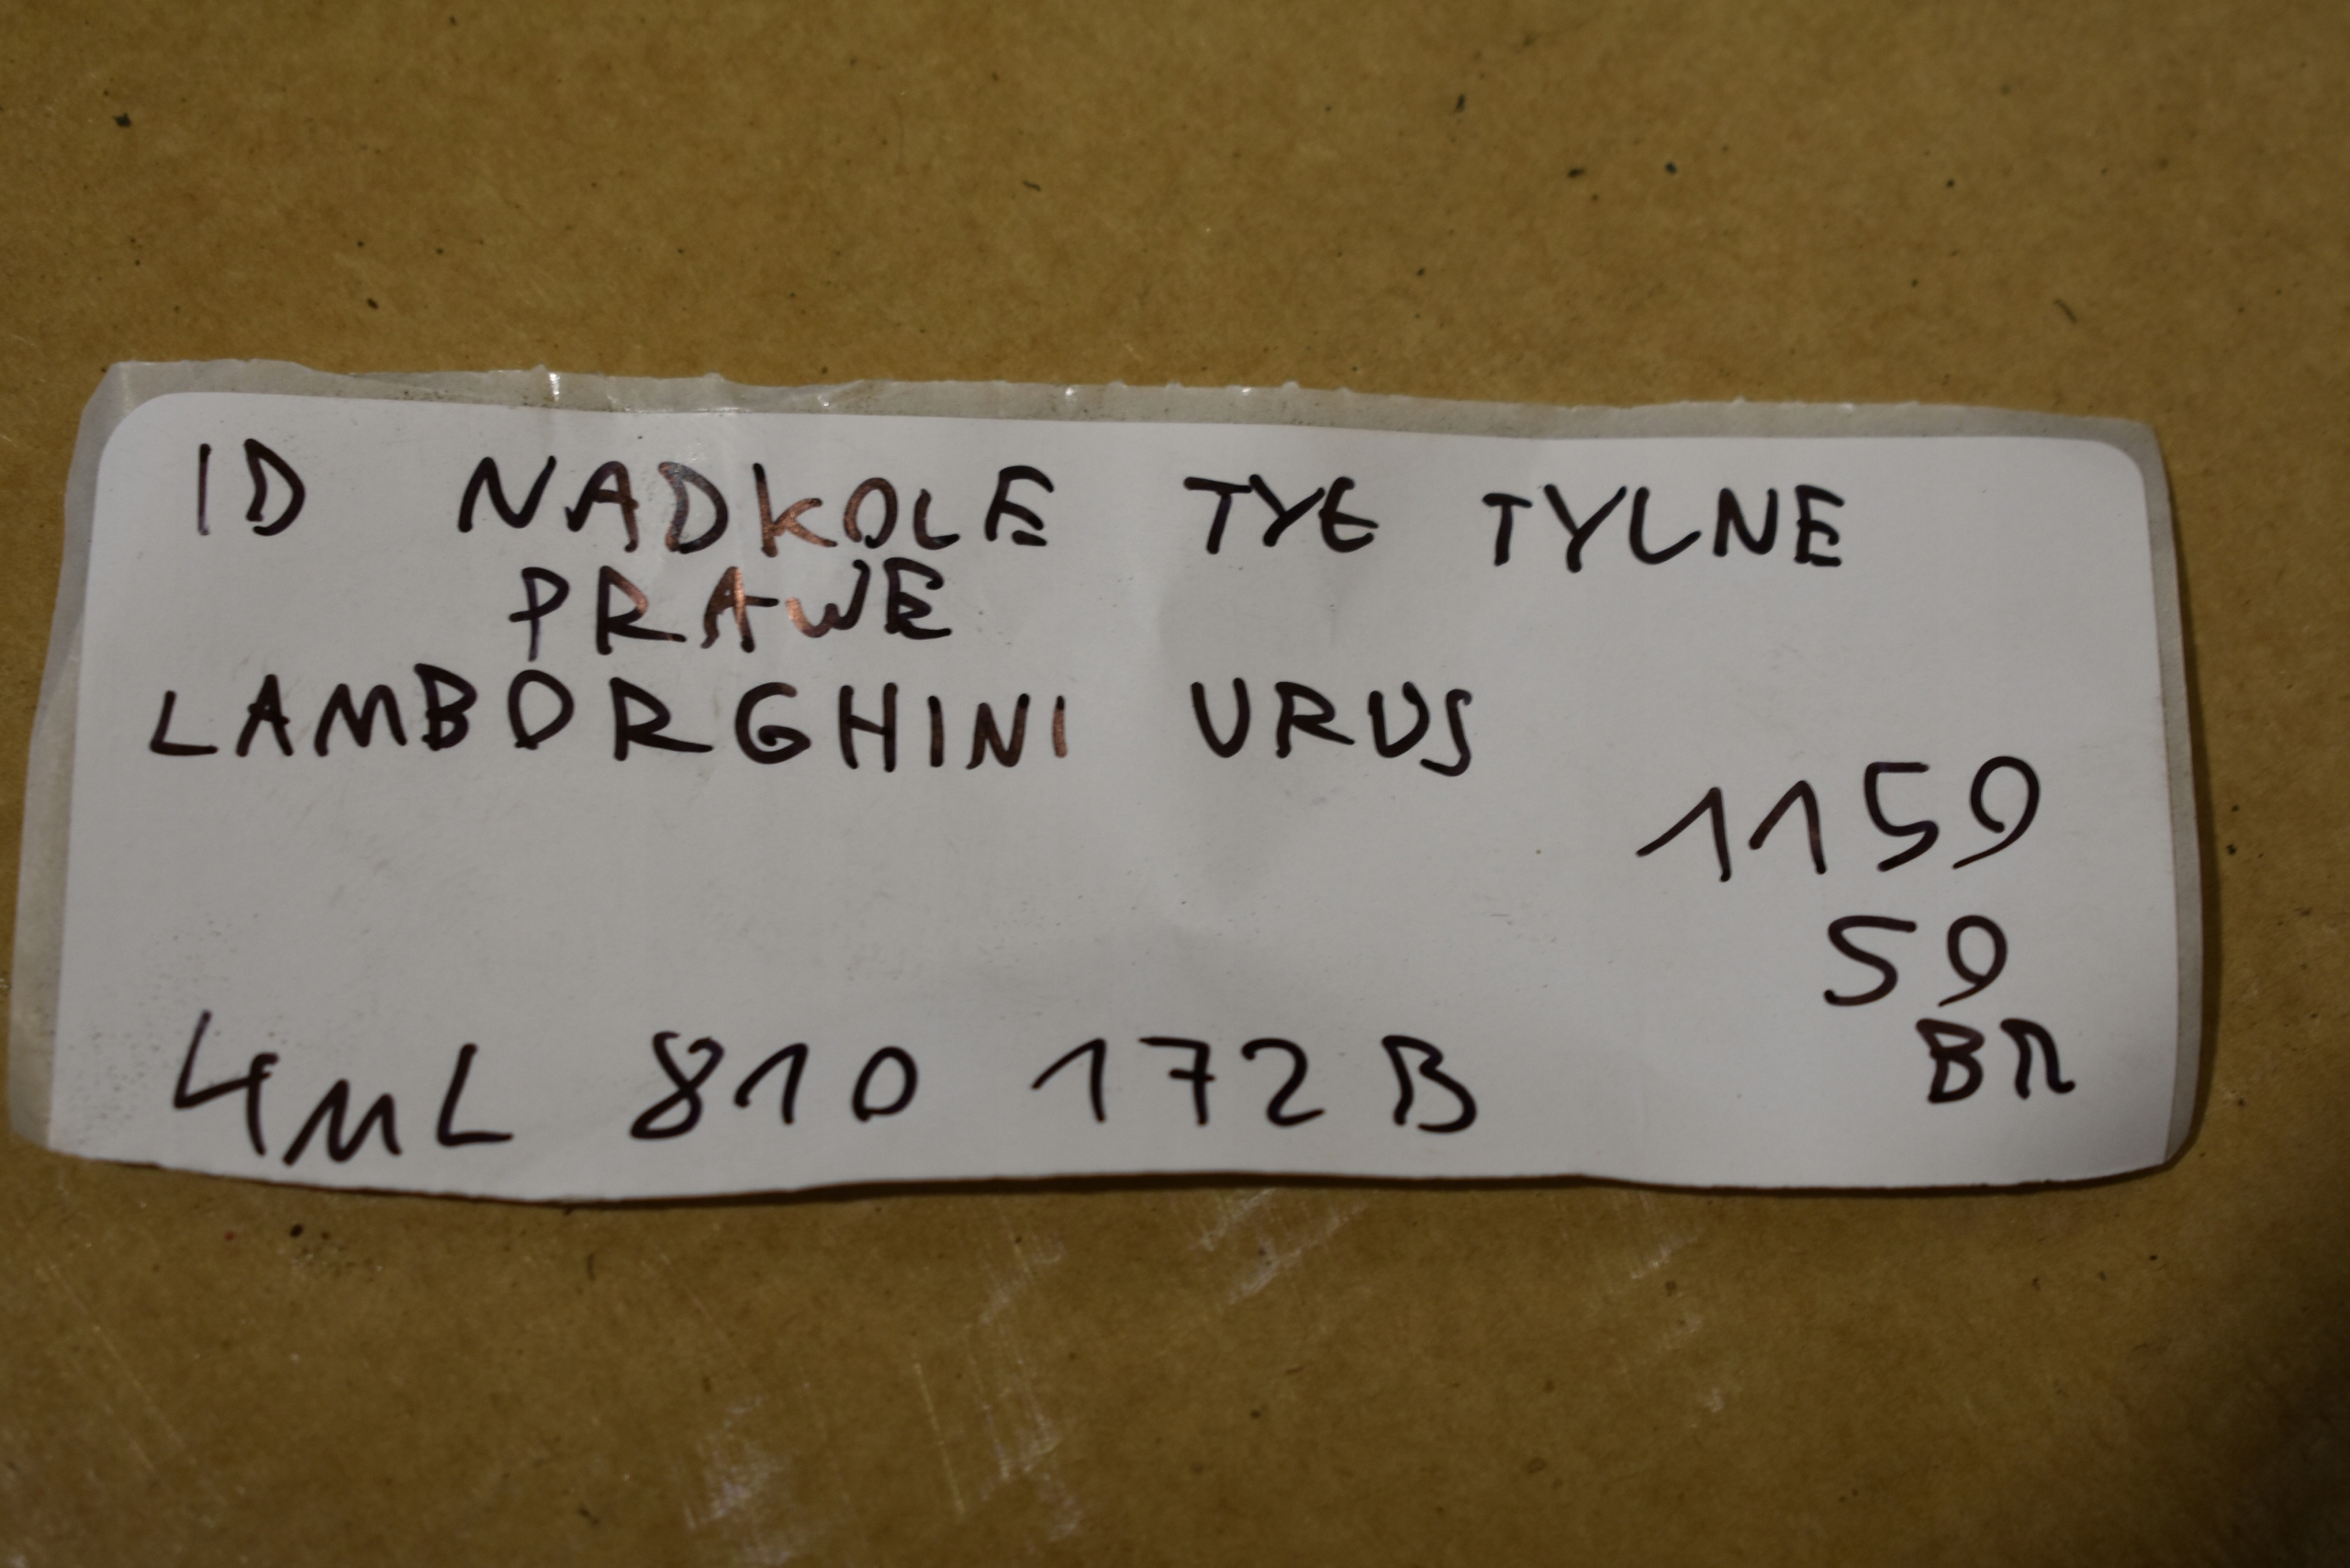 ID NADKOLE TYŁ TYLNE
PRAWE
LAMBORGHINI URUS
1159
59
BR
4ML 810 172 B